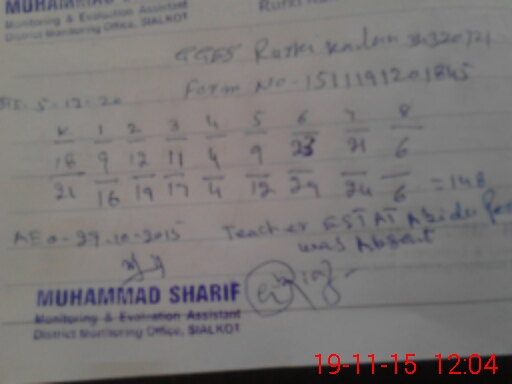 MUHAMMAD
Monitoring & Evaluation Assistant
District Monitoring Office, SIALKOT
GGES Rurki Kadan
Form No-1511191201845
5-12-20
K 1 2 3 4 5 6 7 8
18 9 12 11 4 9 23 21 6
21 16 19 17 4 12 29 24 6 =148
AEO-29-10-2015 Teacher EST AT Abida
was Absent
MUHAMMAD SHARIF
Monitoring & Evaluation Assistant
District Monitoring Office, SIALKOT
19-11-15 12:04